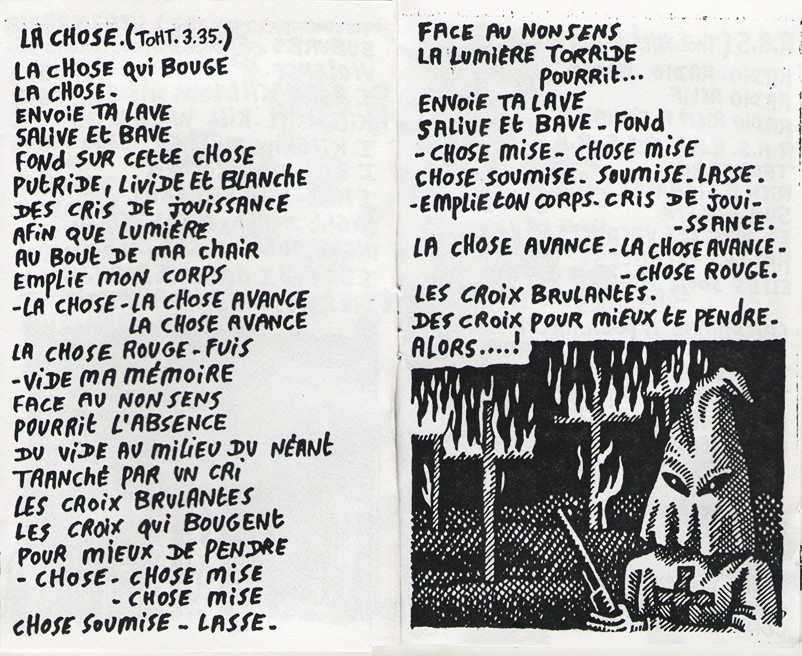 LA CHOSE.(TOHT. 3.35.)
LA CHOSE QUI BOUGE
LA CHOSE.
ENVOIE TA LAVE
SALIVE ET BAVE
FOND SUR CETTE CHOSE
PUTRIDE, LIVIDE ET BLANCHE
DES CRIS DE JOUISSANCE
AFIN QUE LUMIÈRE
AU BOUT DE MA CHAIR
EMPLIE MON CORPS
-LA CHOSE-LA CHOSE AVANCE
LA CHOSE AVANCE
LA CHOSE ROUGE-FUIS
-VIDE MA MÉMOIRE
FACE AU NON SENS
POURRIT L'ABSENCE
DU VIDE AU MILIEU DU NÉANT
TRANCHÉ PAR UN CRI
LES CROIX BRULANTES
LES CROIX QUI BOUGENT
POUR MIEUX DE PENDRE
- CHOSE- CHOSE MISE
- CHOSE MISE
CHOSE SOUMISE - LASSE-
FACE AU NON SENS
LA LUMIÈRE TORRIDE
POURRIT...
ENVOIE TA LAVE
SALIVE ET BAVE - FOND.
- CHOSE MISE- CHOSE MISE
CHOSE SOUMISE. SOUMISE-LASSE.
-EMPLIE TON CORPS. CRIS DE JOUI-
-SSANCE.
LA CHOSE AVANCE-LA CHOSE AVANCE-
- CHOSE ROUGE.
LES CROIX BRULANTES.
DES CROIX POUR MIEUX TE PENDRE-
ALORS....!